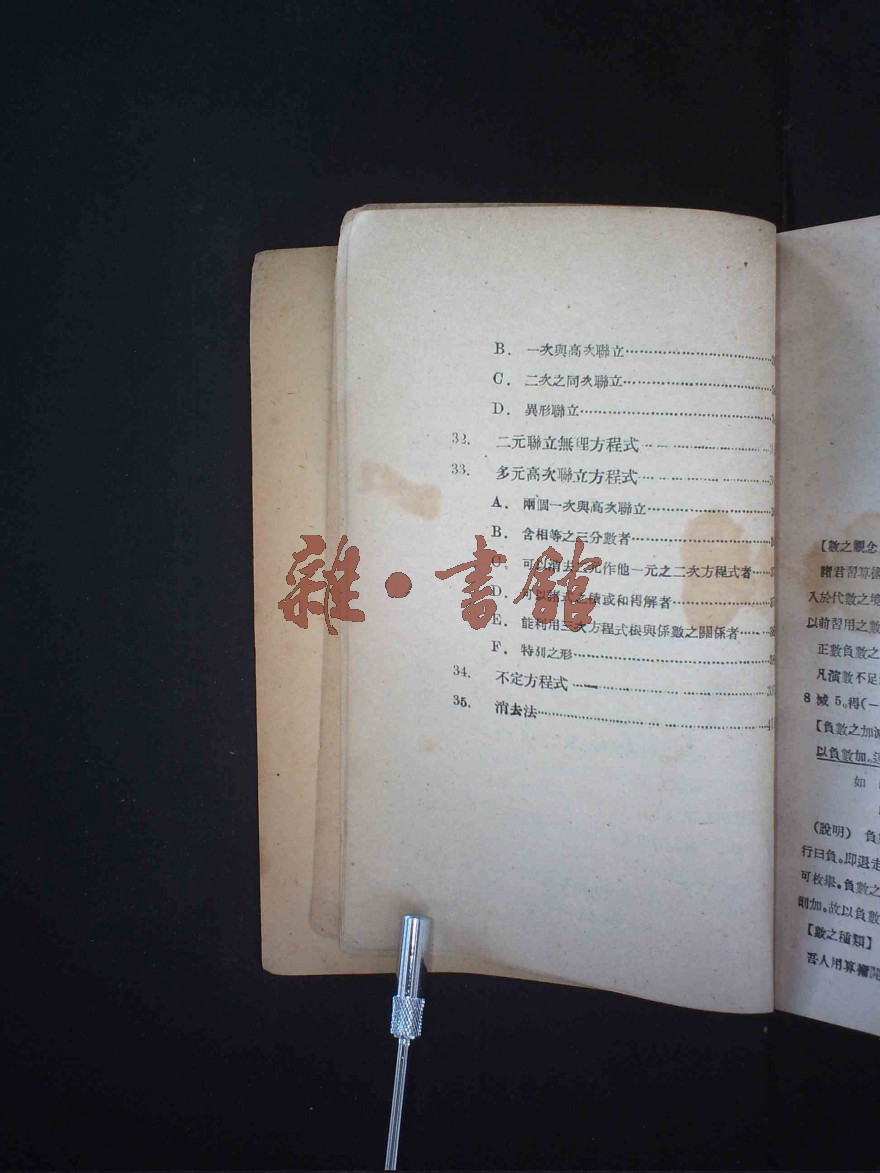 B. 一次與高次聯立
C. 二次之同次聯立
D. 異形聯立
32. 二元聯立無理方程式
33. 多元高次聯立方程式
A. 兩個一次與高次聯立
B. 含相等之三分數者
C. 可以消去 元作他一元之二次方程式者
D. 可以諸式之積或和得解者
E. 能利用三次方程式根與係數之關係者
F. 特別之形
34. 不定方程式
35. 消去法
雜・書館
【數之觀念
諸君習算術
入於代數之境
以前習用之數
正數負數之
凡演數不足
8 減 5。得(—
【負數之加減
以負數加。
如
(說明) 負
行曰負。即退走
可枚舉。負數之
則加。故以負數
【數之種類】
吾人用算術